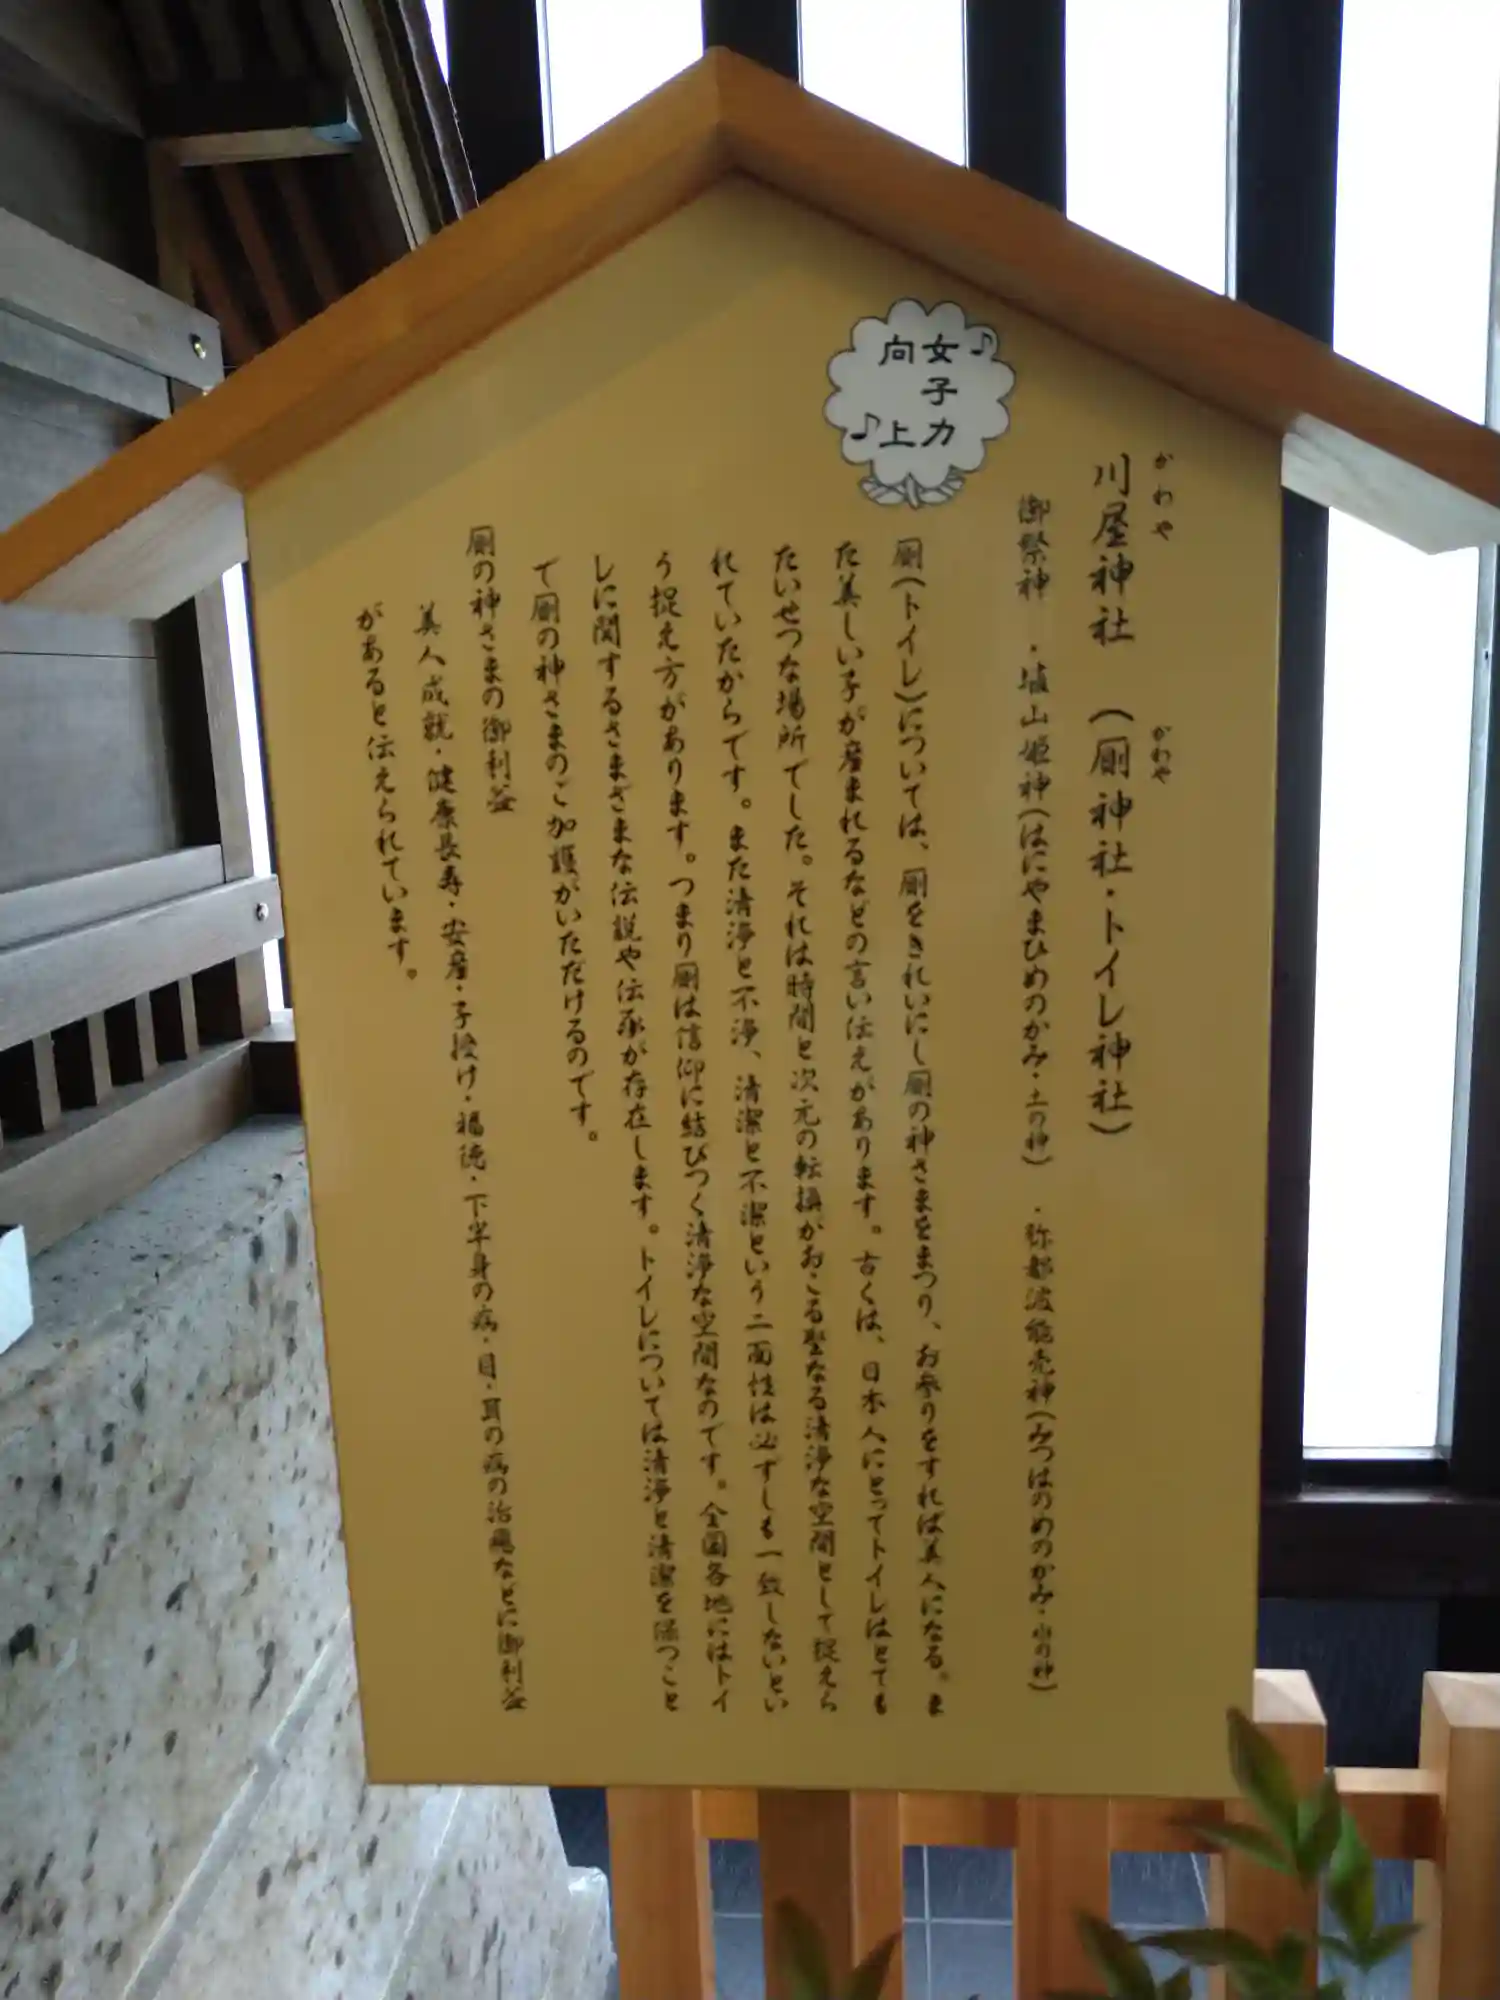 ♪女子力
向上♪
かわや　がわや
川屋神社　（厠神社・トイレ神社）
御祭神　・埴山姫神（はにやまひめのかみ・土の神）　・弥都波能売神（みつはのめのかみ・水の神）
厠（トイレ）については、厠をきれいにし厠の神さまをまつり、お参りをすれば美人になる。ま
た美しい子が産まれるなどの言い伝えがあります。古くは、日本人にとってトイレはとても
たいせつな場所でした。それは時間と次元の転換がおこる聖なる清浄な空間として捉えら
れていたからです。また清浄と不浄、清潔と不潔という二面性は必ずしも一致しないとい
う捉え方があります。つまり厠は信仰に結びつく清浄な空間なのです。全国各地にはトイ
レに関するさまざまな伝説や伝承が存在します。トイレについては清浄と清潔を保つこと
で厠の神さまのご加護がいただけるのです。
厠の神さまの御利益
美人成就・健康長寿・安産・子授け・福徳・下半身の病・目・耳の病の治癒などに御利益
があると伝えられています。